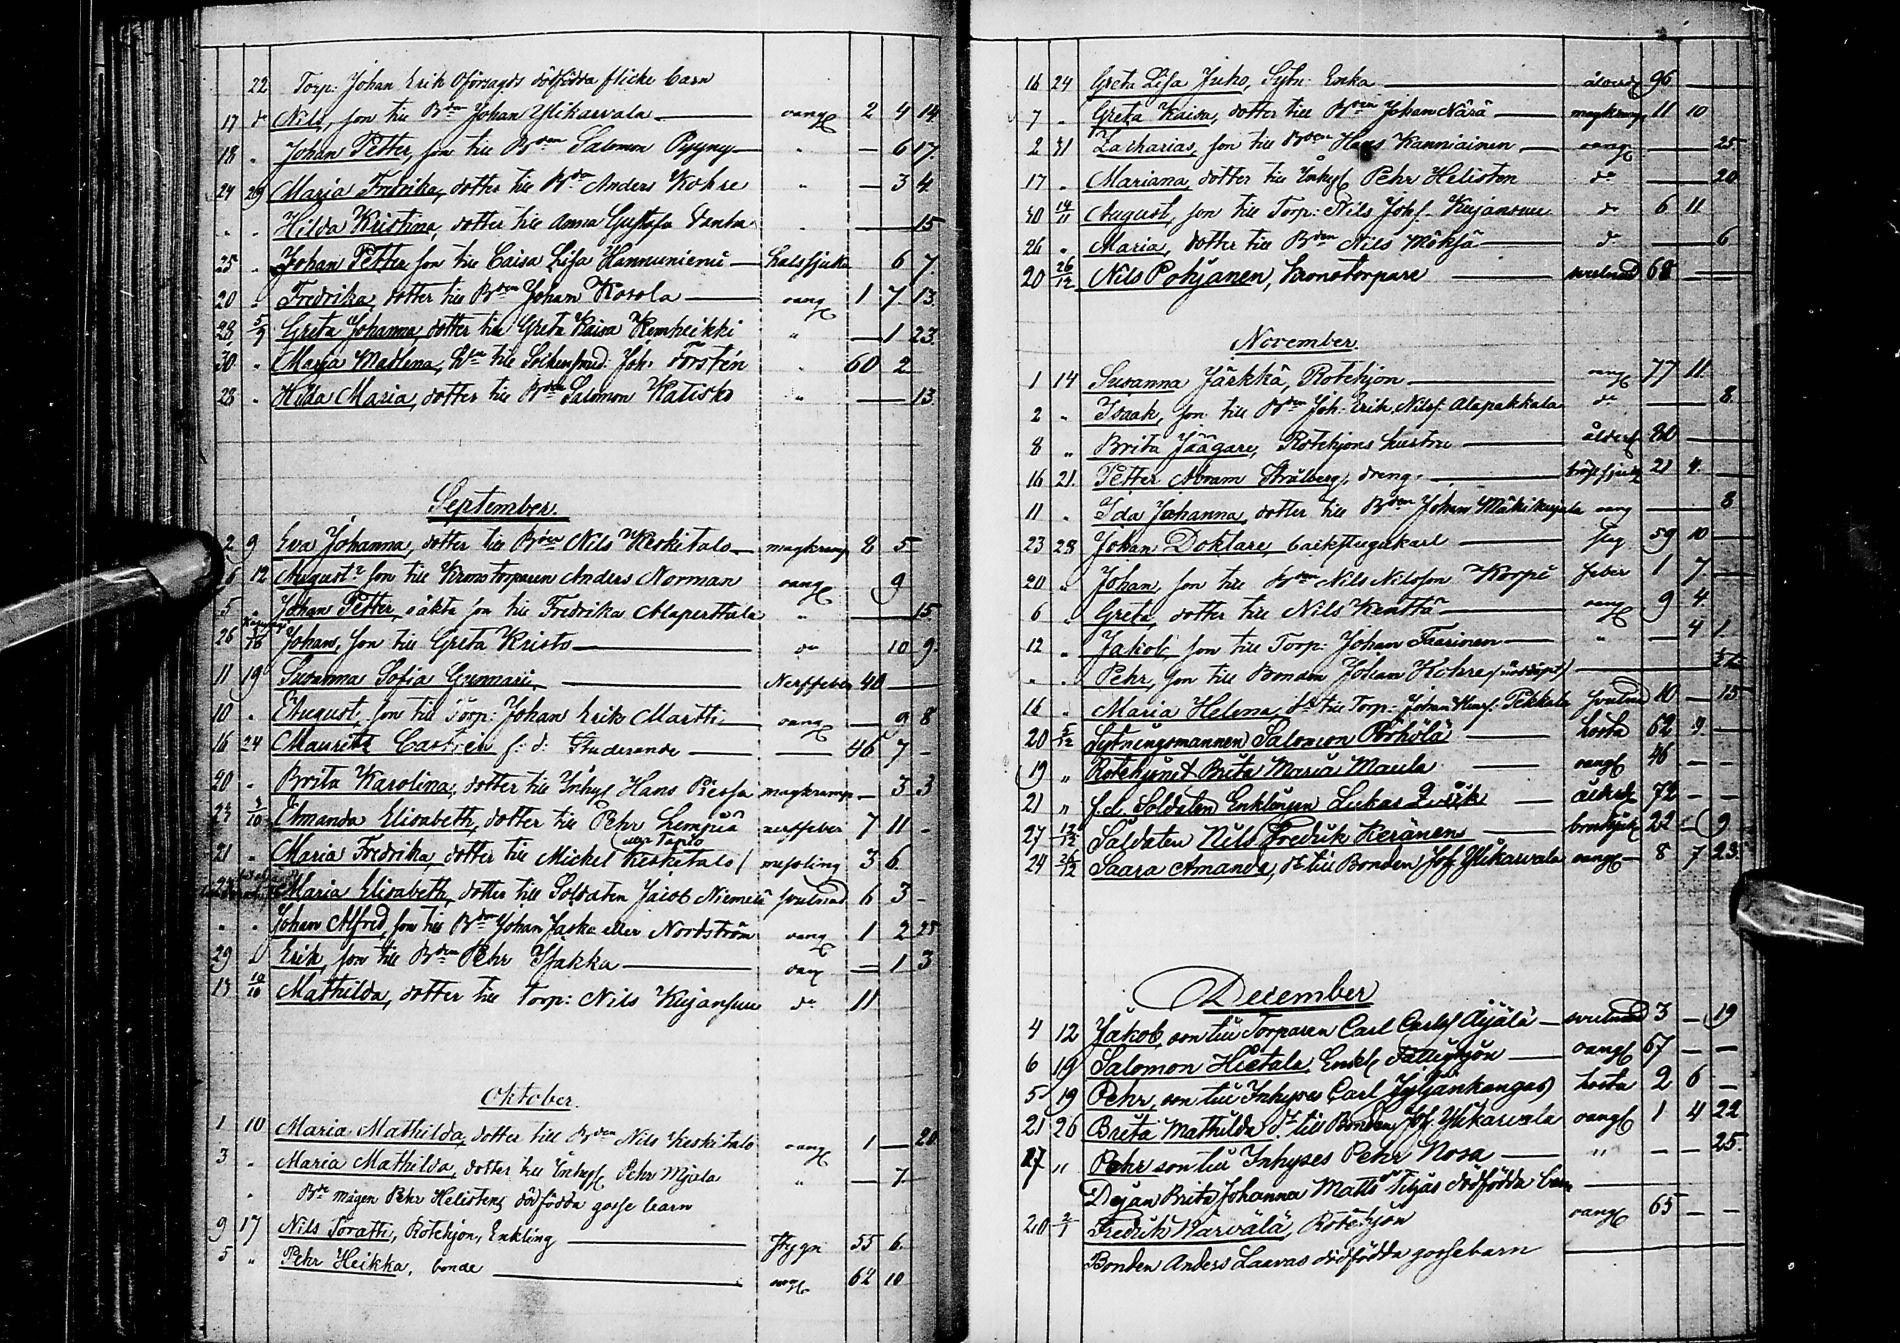 22 Torp: Johan Erik dödfödda flicke barn
17 Nils, son till Bden Johan Ylikarvala oang 2 4 14
18 " Johan Petter, son till Bden Salomon " — 6 17
24 29 Maria Fredrika, dotter till Bdn Anders Kohre " — 3 4
" " Hilda Kristina, dotter till Anna Gustafa — 15
25 " Johan Petter son till Caisa Lisa Hannuniemi halssjuka 6 7
20 " Fredrika dotter till Bden Johan Kosola oang 1 7 13
28 5/9 Greta Johanna, dotter till Greta Kaisa Kemheikki " — 1 23
30 " Maria Madlena, till Joh. Forstén " 60 2
28 " Hilda Maria, dotter till Bden Salomon Katisko " — 13
September.
2 9 Eva Johanna, dotter till Bden Nils Keskitalo magkramp 8 5
6 12 August son till Kronotorparen Anders Norman oang 9
5 " Johan Petter, oäkta son till Fredrika Alaperttala " — 15
26 Johan, son till Greta Kristo do 10 9
11 19 Susanna Sofia Gunnari Nerffeber 40 —
10 " August, son till Torp: Johan Erik Martti oang — 9 8
16 24 Mauritz Castrén f: d: Studerande — 46 7 -
20 " Brita Karolina, dotter till Inhys Hans Piessa magkramp — 3 3
23 Amanda Elisabeth, dotter till Pehr nerffeber 7 11 -
21 " Maria Fredrika, dotter till Mickel Keskitalo / messling 3 6
eller Tapio
Maria Elisabeth, dotter till Soldaten Jacob Niemelä svulnad 6 3 -
" " Johan Alfred, son till Bdn Johan Jaska eller Nordström oang 1 2 25
29 Erik, son till Bden Pehr oang — 1 3
13 10/10 Mathilda, dotter till Torp: Nils Kujansuu do 11
Oktober.
1 10 Maria Mathilda, dotter till Bden Nils Keskitalo oang 1 — 20
3 " Maria Mathilda, dotter till Inhys Pehr " — 7
" Bde mågen Pehr Helistens dödfödda gosse barn
9 17 Nils Toratti, Rotehjon, Enkling Stygn 55 6
5 " Pehr Heikka, bonde oang 62 10
16 24 Greta Lisa Juho, Sytn: Enka ålderd 96 —
7 " Greta Kaisa, dotter till Bden Johan Närä magkramp 11 10
2 31 Zacharias, son till Bden Hans Kanniainen oang — — 25
17 " Mariana, dotter till Inhys Pehr Helisten do — 20
30 14/11 August, son till Torp: Nils Johs. Kujansuu do 6 11
26 " Maria, dotter till Bden Nils Möksä do — 6
20 26/12 Nils Pohjanen, kronotorpare svulnad 68 —
November.
1 14 Susanna Järkkä, Rotehjon oang 77 11
2 " Isaak, son till Bden Joh: Erik Nilsf Alapakkala do — 8
8 " Brita Jäägare, Rotehjons hustru ålderd 80 —
16 21 Petter Abram Strålberg, dreng bröstsjuk 21 4 —
11 " Ida Johanna, dotter till Bden Johan Mäkikujala oang — 8
23 28 Johan Doktare, backstugukarl 59 10 —
20 " Johan, son till Bden Nils Nilsson Korpi feber 1 7 —
6 " Greta, dotter till Nils Kenttä oang 9 4
12 " Jakob son till Torp: Johan Taarinen " — 4 1
" " Pehr, son till Bonden Johan Kohre (nöddöpt) — —
16 " Maria Helena dr till Torp: Johan Pekkala svulnad 10 — 15
20 5/12 Sytningsmannen Salomon Pörhölä hosta 62 9 —
19 " Rotehjonet Brita Maria Maula oang 46 — —
21 " f.d. Soldaten Enklingen Lukas ålderd 72 — —
27 12/12 Soldaten Nils Fredrik Keränen bröstsjuk 22 — 9
24 26/12 Saara Amanda, dr till Bonden Joh Ylikarvala oang 8 7 23
December
4 12 Jakob, son till Torparen Carl Carlsf Äijälä svulnad 3 — 19
6 19 Salomon Hietala, Enkl Fattighjon oang 67 — —
5 19 Pehr, son till Inhyses Carl Jyljänkangas hosta 2 6 —
21 26 Brita Mathilda dr till Bonden Joh. Ylikarvala oang 1 4 22
17 " Pehr son till Inhyses Pehr Rosa " — — 25
Dejan Brita Johanna Matts dödfödda barn —
20 2/1 Fredrik Närvälä, Rotehjon oang 65 — —
Bonden Anders Laavas dödfödda gossebarn